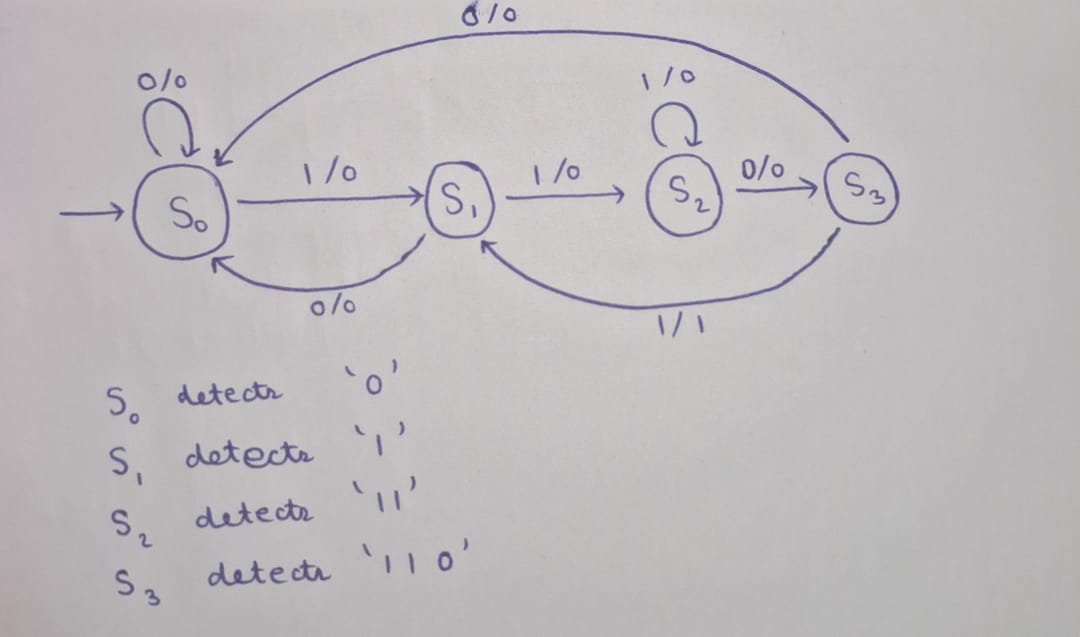 0/0
0/0
1/0
1/0
1/0
0/0
S0
S1
S2
S3
0/0
1/1
S0 detects '0'
S1 detects '1'
S2 detects '11'
S3 detects '110'